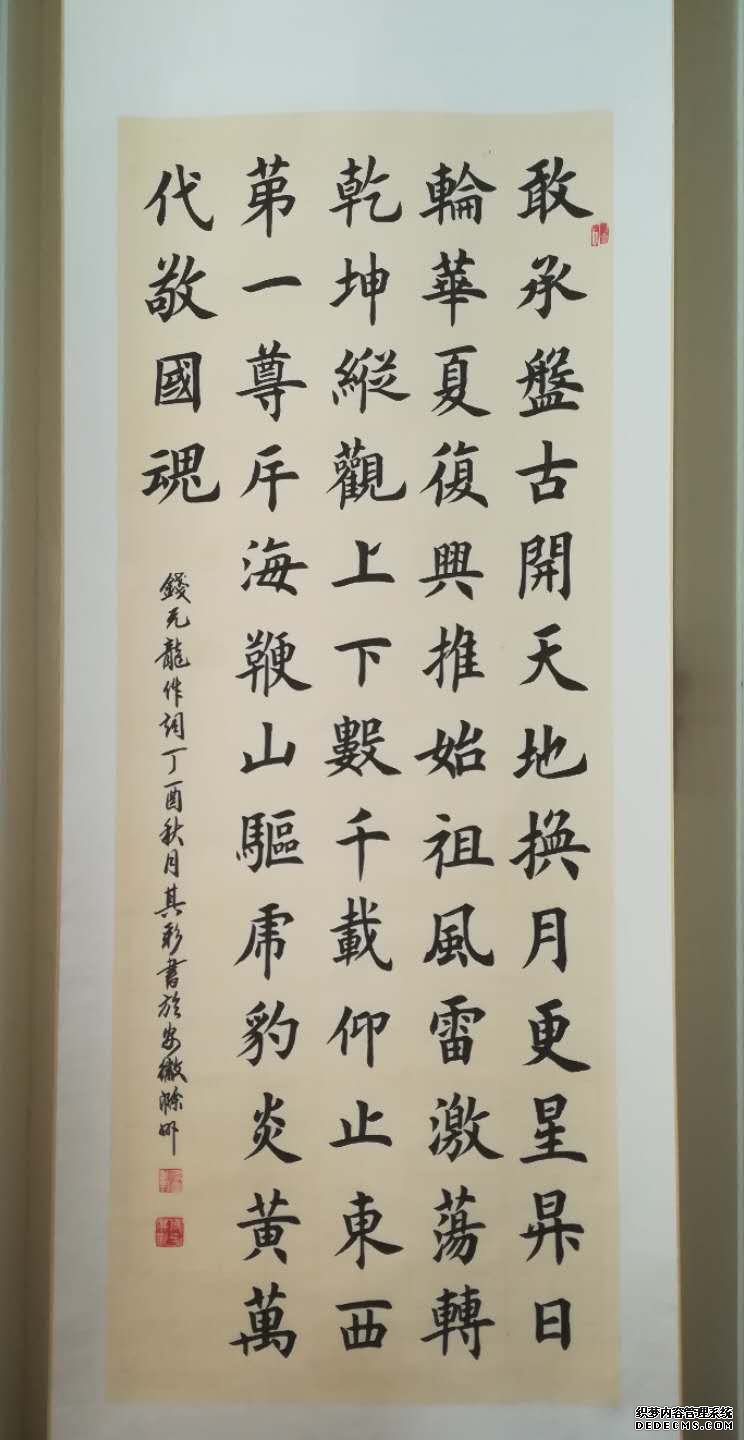 敢承盤古開天地換月更星昇日
輪華夏復興推始祖風雷激蕩轉
乾坤縱觀上下數千載仰止東西
苐一尊斥海鞭山驅虎豹炎黃萬
代敬國魂
錢元龍作詞丁酉秋月其彩書於安徽滁州
织梦内容管理系统
DEDECMS.COM